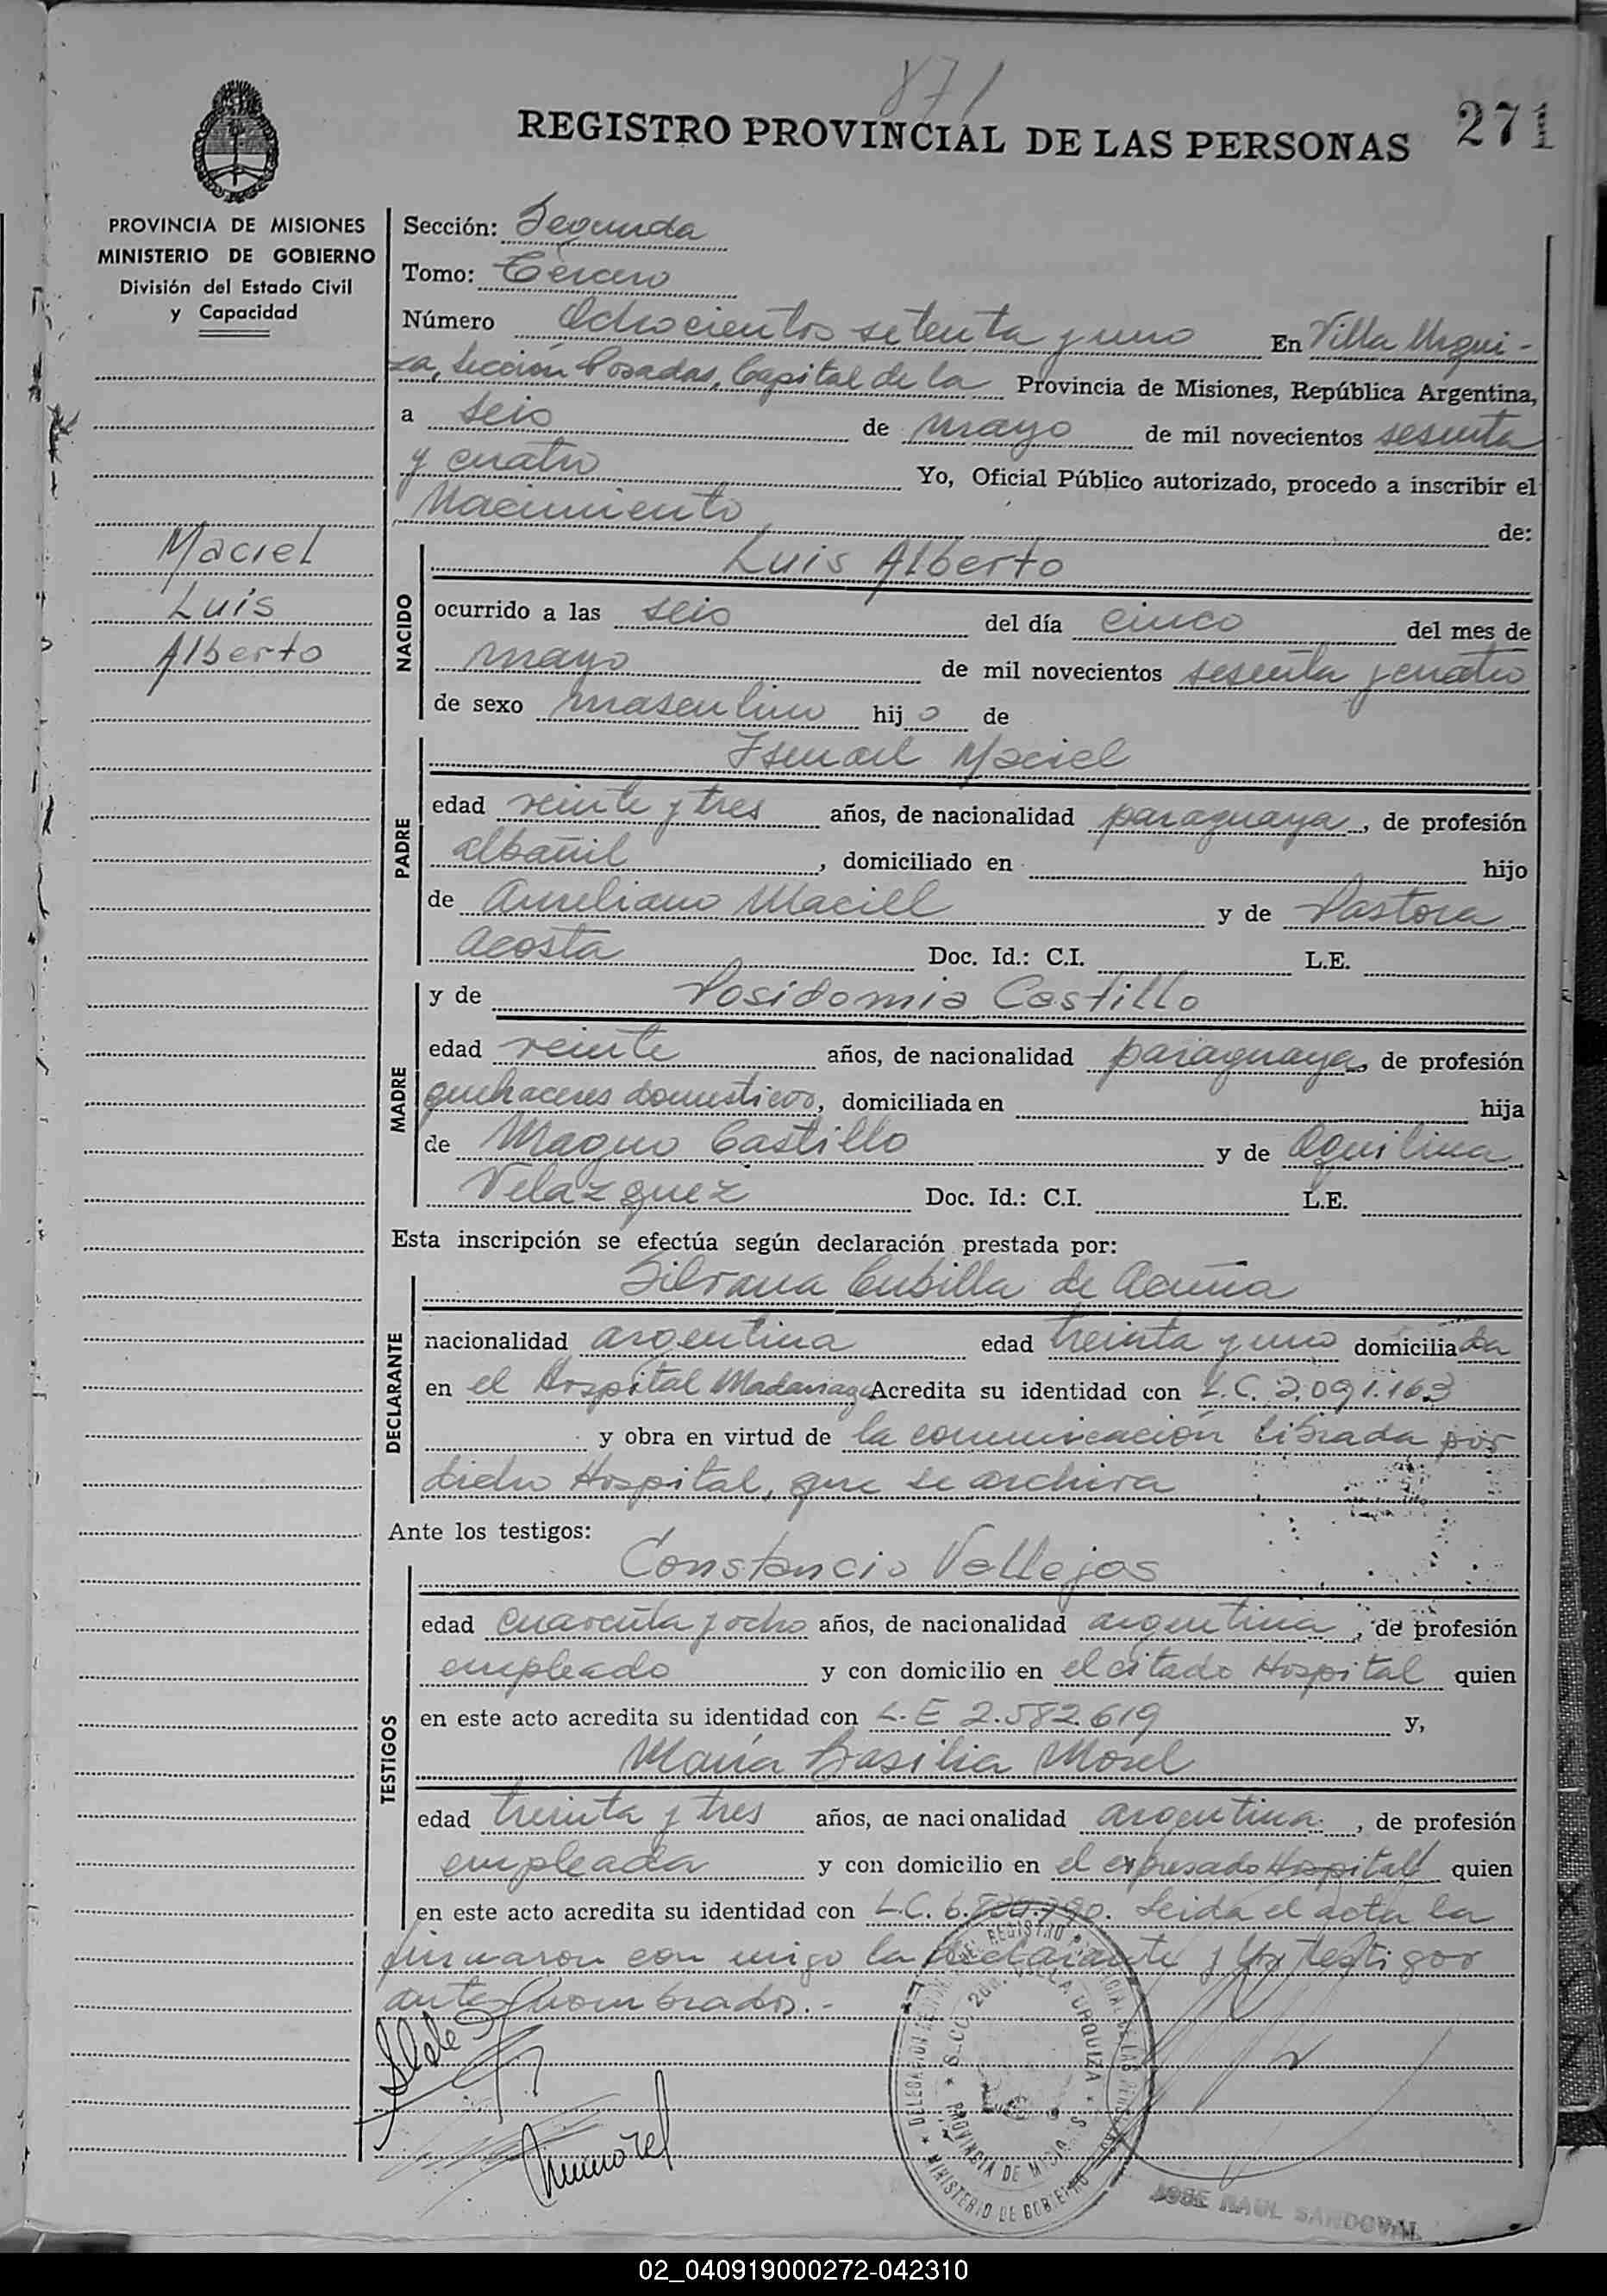 871
REGISTRO PROVINCIAL DE LAS PERSONAS 271
PROVINCIA DE MISIONES
MINISTERIO DE GOBIERNO
División del Estado Civil
y Capacidad
Maciel
Luis
Alberto
Sección: Segunda
Tomo: Tercero
Número Ochocientos setenta y uno En Villa Urqui-
za, Sección Posadas, Capital de la Provincia de Misiones, República Argentina,
a seis de mayo de mil novecientos sesenta
y cuatro Yo, Oficial Público autorizado, procedo a inscribir el
Nacimiento de:
NACIDO
Luis Alberto
ocurrido a las seis del día cinco del mes de
mayo de mil novecientos sesenta y cuatro
de sexo masculino hijo de
PADRE
Ismael Maciel
edad veinte y tres años, de nacionalidad paraguaya, de profesión
albañil, domiciliado en hijo
de Aureliano Maciel y de Pastora
Acosta Doc. Id.: C.I. L.E.
MADRE
y de Posidomia Castillo
edad veinte años, de nacionalidad paraguaya, de profesión
quehaceres domesticos, domiciliada en hija
de Magno Castillo y de Aquilina
Velazquez Doc. Id.: C.I. L.E.
Esta inscripción se efectúa según declaración prestada por:
DECLARANTE
Silvana Cubilla de Acuña
nacionalidad argentina edad treinta y uno domiciliada
en el Hospital Madariaga Acredita su identidad con L.C. 2.091.163
y obra en virtud de la comunicación librada por
dicho Hospital, que se archiva
Ante los testigos:
TESTIGOS
Constancio Vallejos
edad cuarenta y ocho años, de nacionalidad argentina, de profesión
empleado y con domicilio en el citado Hospital quien
en este acto acredita su identidad con L.E 2.582.619 y,
María Basilia Morel
edad treinta y tres años, de nacionalidad argentina, de profesión
empleada y con domicilio en el expresado Hospital quien
en este acto acredita su identidad con L.C. Leida el acta la
firmaron con migo la declarante y los testigos
antes nombrados.-
SECC. 2da. VILLA URQUIZA
PROVINCIA DE MISIONES
MINISTERIO DE GOBIERNO
JOSE RAUL SANDOVAL
02_040919000272-042310